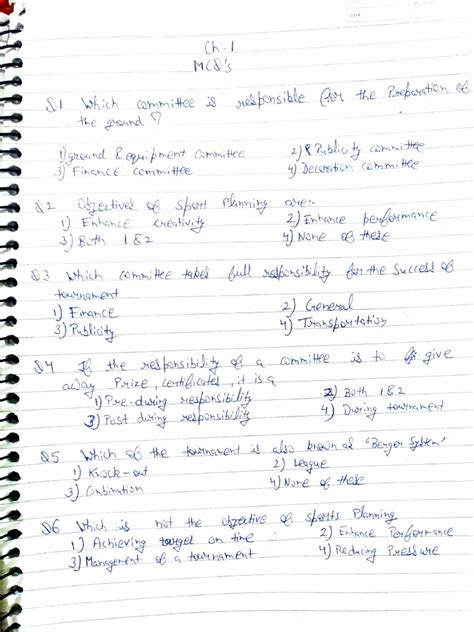 Date
Ch-1
MCQ's
Q1 Which committee is responsible for the Preparation of
the ground ?
1) ground & equipment committee 2) Publicity committee
3) Finance committee 4) Decoration committee
Q2 Objectives of sport Planning are:-
1) Enhance creativity 2) Enhance performance
3) Both 1&2 4) None of these
Q3 Which committee takes full responsibility for the Success of
tournament
1) Finance 2) General
3) Publicity 4) Transportation
Q4 If the responsibility of a committee is to give
away Prize, certificates, it is a
1) Pre-during responsibility 2) Both 1&2
3) Post during responsibility 4) During tournament
Q5 Which of the tournament is also known as 'Berger System'
1) Knock-out 2) League
3) Cobination 4) None of these
Q6 Which is not the objective of sports Planning
1) Achieving target on time 2) Enhance Performance
3) Management of a tournament 4) Reducing Pressure